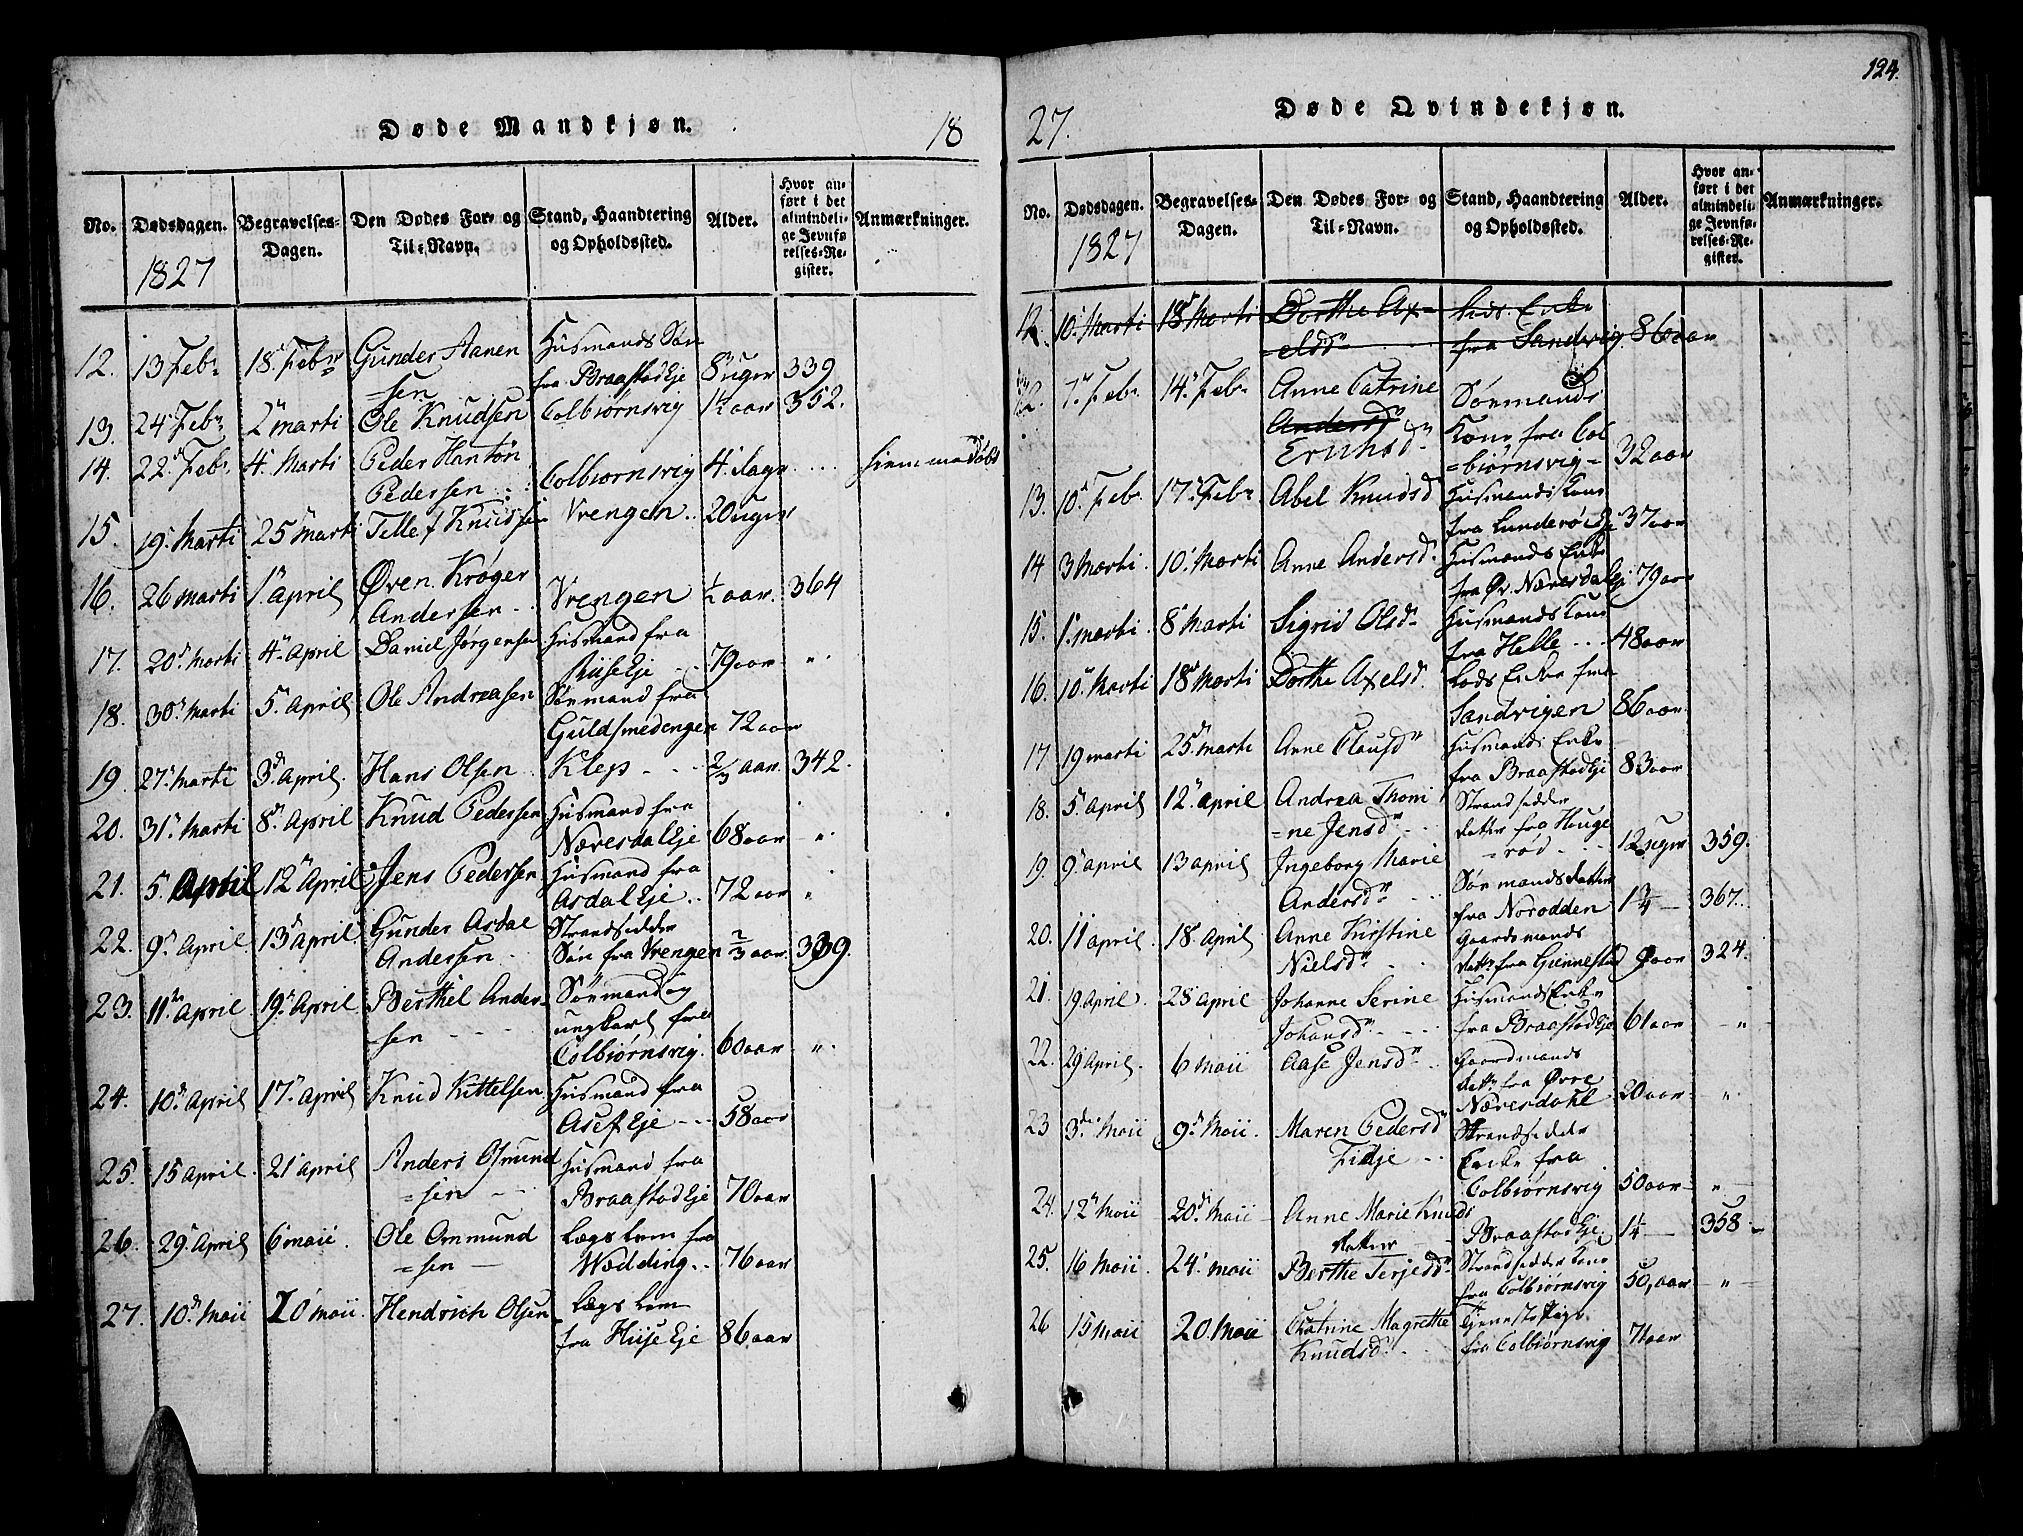 124.
Døde Mandkjøn.
18
No.
Dødsdagen.
1827
Begravelses-
Dagen.
Den Dødes For- og
Til-Navn.
Stand, Haandtering
og Opholdssted.
Alder.
Hvor an-
ført i det
almindeli-
ge Jevnfø-
relses-Re-
gister.
Anmærkninger.
12. 13 Febr 18. Febr Gunder Aanen Husmands Søn
sen fra Braastad Eje 8 uger 339
13. 24 Febr 2 marti Ole Knudsen Colbiørnsvig 1½ aar 352.
14. 22. Febr. 4. Marti Peder
Pedersen Colbiørnsvig 4 dage hiemmedøbt
15. 19. Marti 25 Marti Tellef Knudsen Vrengen 20 uger
16. 26 marti 1. april Øven Krøger
Andersen Vrengen ½ aar. 364
17. 20. Marti 4. April Daniel Jørgensen Husmand fra
Riise Eje 79 aar "
18. 30. Marti 5. April Ole Andreasen Sømand fra
Guldsmedengen 72 aar
19 27. Marti 3. April. Hans Olsen Klep 2/3 aar. 342.
20. 31. Marti 8. April Knud Pedersen Husmand fra
Næresdal Eje 68 aar "
21. 5. April 12 April Jens Pedersen Husmand fra
Asdal Eje 72 aar "
22. 9. April 13 April. Gunder Asdal Strandsidder
Andersen Søn fra Vrengen 2/3 aar 339.
23. 11. April 19. April Berthel Ander- Sømand og
sen ungkarl fra
Colbiørnsvig. 60 aar "
24. 10. April 17. April Knud Kittelsen Husmand fra
Asef Eje 58 aar
25. 15 April. 21 april Anders Osmund Husmand fra
=sen Braastad Eje 70 aar
26. 29. April 6 maii. Ole Ommund Lægs Lem fra
=sen Wedding 76 aar
27. 10. Maii 20 Maii Hendrich Olsen Lægs Lem
fra Huse Eje 86 aar
27.
Døde Qvindekjøn.
No.
Dødsdagen.
1827
Begravelses-
Dagen.
Den Dødes For- og
Til-Navn.
Stand, Haandtering
og Opholdssted.
Alder.
Hvor an-
ført i det
almindeli-
ge Jevnfø-
relses-Re-
gister.
Anmærkninger.
12. 10. Marti 18 Marti Dorthe Ax= Lods Enke
=elsd. fra Sandvig 86 aar
12. 7. Febr 14. Febr Anne Catrine Sømands
Andersd. Kone fra Col
=biørnsvig= 32 aar
13. 10. Febr. 17. Febr Abel Knudsd. Husmands Kone
fra Lunderø Eje 37 aar
14 3 Marti. 10. Marti Anne Andersd. Husmands Enke
fra Øv. Næresdal Eje 79 aar
15. 1. marti. 8 Marti Sigrid Olsd. Husmands Kone
fra Helle 48 aar
16. 10. Marti 18 Marti Dorthe Axelsd. Lods Enke fra
Sandvigen 86 aar.
17 19 marti 25. marti Anne Clausd. Husmands Enke
fra Braastad Eje 83 aar
18. 5. april 12. april Andrea Thomi Strandsidder
=ne Jensd. datter fra Houge
=rød 12 uger 359.
19. 9. april 13 april Ingeborg Marie Sømands datter
Andersd. fra Norodden 1¼ 367.
20. 11 april 18 April Anne Kirstine Gaardmands
Nielsd. datt. fra Giennestad 9 aar 324.
21. 19 April. 28 april Johanne Serine Husmands Enke
Johansd. fra Braastad Eje 61 aar "
22. 29 April. 6 maii Aase Jensd. Gaardmands
datt. fra Øvre
Næresdahl 20 aar "
23 3. Maii 9. Maii. Maren Pedersd. Strandsidder
Fidje Enke fra
Colbiørnsvig 50 aar "
24. 12 Maii 20. Maii Anne Marie Knuds
datter Braastad Eje. 1¼ 358
25. 16 Maii. 24. maii Berthe Terjesd. Strandsidder Kone
fra Colbiørnsvig 50, aar "
26 15 Maii 20. Maii Chatrine Magrethe Tjeneste Pige
Knudsd. fra Colbiørnsvig 71 aar